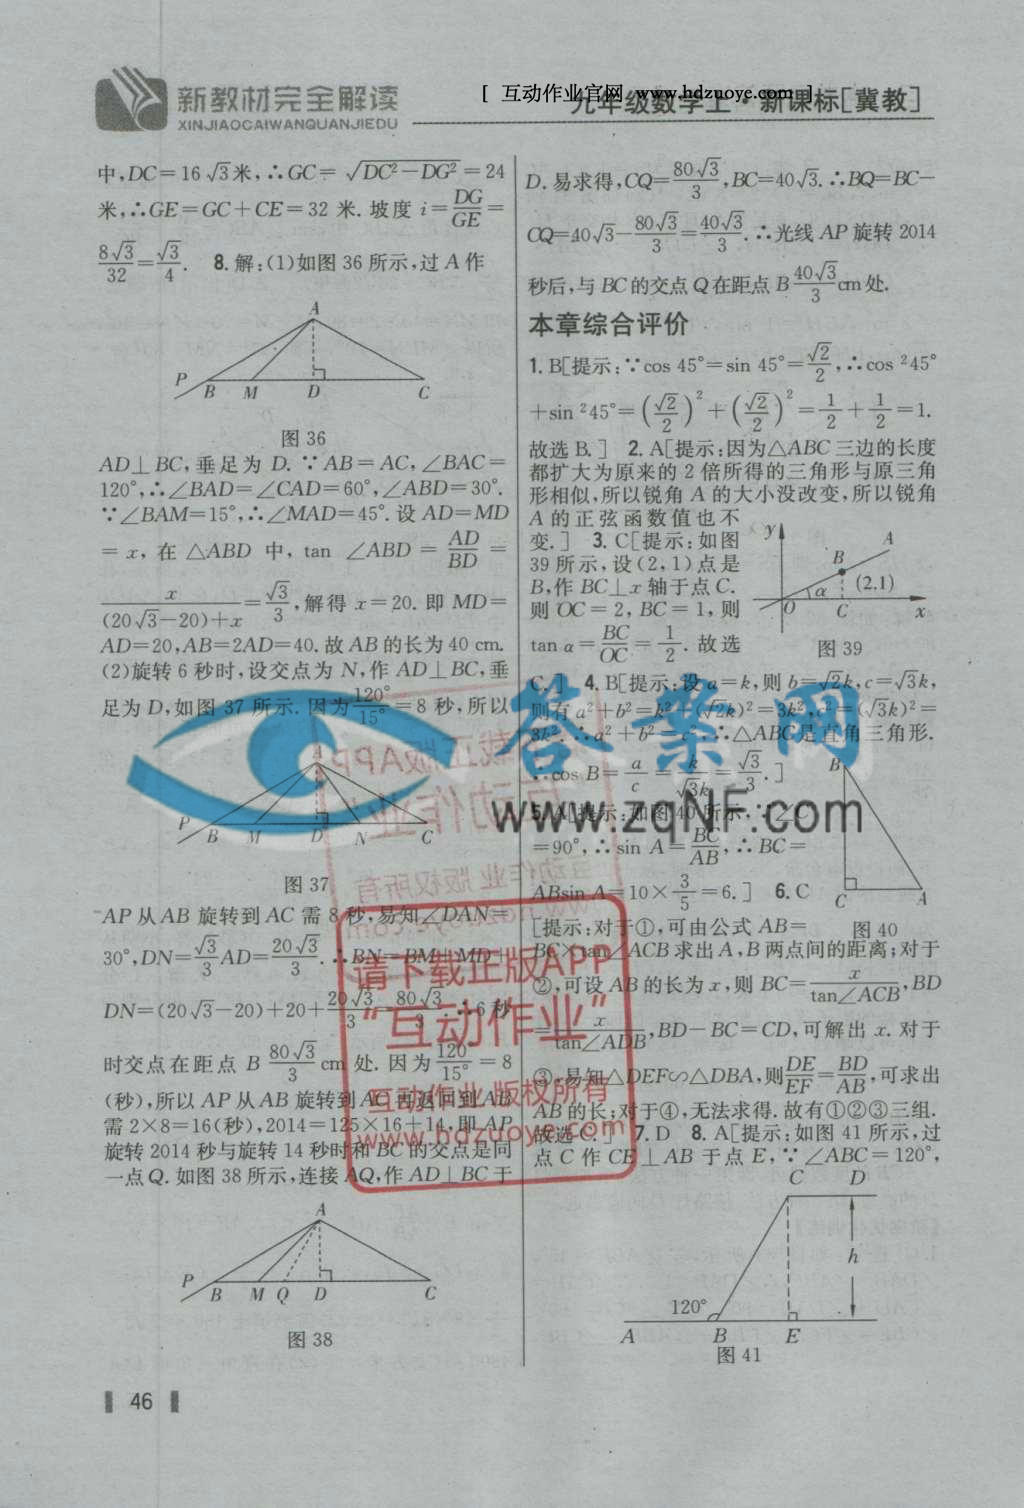 新教材完全解读
XINJIAOCAIWANQUANJIEDU
[ 互动作业官网 www.hdzuoye.com ]
九年级数学上·新课标[冀教]
中,DC=16√3米,∴GC=√(DC²-DG²)=24
米,∴GE=GC+CE=32 米. 坡度 i=DG/GE=
8√3/32=√3/4. 8.解:(1)如图 36 所示,过 A 作
A
P B M D C
图 36
AD⊥BC,垂足为 D.∵AB=AC,∠BAC=
120°,∴∠BAD=∠CAD=60°,∠ABD=30°.
∵∠BAM=15°,∴∠MAD=45°.设 AD=MD
=x, 在 △ABD 中, tan ∠ABD=AD/BD=
x/((20√3-20)+x)=√3/3,解得 x=20. 即 MD=
AD=20,AB=2AD=40. 故 AB 的长为 40 cm.
(2)旋转 6 秒时,设交点为 N,作 AD⊥BC,垂
足为 D,如图 37 所示. 因为120°/15°=8 秒,所以
A
P B M D N C
图 37
AP 从 AB 旋转到 AC 需 8 秒,易知∠DAN=
30°,DN=√3/3AD=20√3/3.∴BN=BM+MD+
DN=(20√3-20)+20+20√3/3=80√3/3.∴6 秒
时交点在距点 B 80√3/3 cm 处. 因为120/15°=8
(秒),所以 AP 从 AB 旋转到 AC 再返回到 AB
需 2×8=16(秒),2014=125×16+14,即 AP
旋转 2014 秒与旋转 14 秒时和 BC 的交点是同
一点 Q. 如图 38 所示,连接 AQ,作 AD⊥BC 于
A
P B M Q D C
图 38
46
D. 易求得,CQ=80√3/3,BC=40√3.∴BQ=BC-
CQ=40√3-80√3/3=40√3/3.∴光线 AP 旋转 2014
秒后,与 BC 的交点 Q 在距点 B 40√3/3 cm 处.
本章综合评价
1. B[提示:∵cos 45°=sin 45°=√2/2,∴cos ²45°
+sin ²45°=(√2/2)²+(√2/2)²=1/2+1/2=1.
故选 B.] 2. A[提示:因为△ABC 三边的长度
都扩大为原来的 2 倍所得的三角形与原三角
形相似,所以锐角 A 的大小没改变,所以锐角
A 的正弦函数值也不
变.] 3. C[提示:如图
39 所示,设(2,1)点是
B,作 BC⊥x 轴于点 C.
则 OC=2,BC=1,则
tan α=BC/OC=1/2. 故选
y A
B
(2.1)
O α C x
图 39
C.] 4. B[提示:设 a=k,则 b=√2k,c=√3k,
则有 a²+b²=k²+(√2k)²=3k²,c²=(√3k)²=
3k².∴a²+b²=c².∴△ABC 是直角三角形.
∴cos B=a/c=k/√3k=√3/3.]
5. A[提示:如图 40 所示,∵∠C
=90°,∴sin A=BC/AB,∴BC=
ABsin A=10×3/5=6.] 6. C
B
C A
图 40
[提示:对于①,可由公式 AB=
BC×tan∠ACB 求出 A,B 两点间的距离;对于
②,可设 AB 的长为 x,则 BC=x/tan∠ACB,BD
=x/tan∠ADB,BD-BC=CD,可解出 x. 对于
③,易知△DEF∽△DBA,则DE/EF=BD/AB,可求出
AB 的长;对于④,无法求得. 故有①②③三组.
故选 C.] 7. D 8. A[提示:如图 41 所示,过
点 C 作 CE⊥AB 于点 E,∵∠ABC=120°,
C D
h
120°
A B E
图 41
答案网
www.zqNF.com
请下载正版APP
"互动作业"
互动作业 版权所有
www.hdzuoye.com